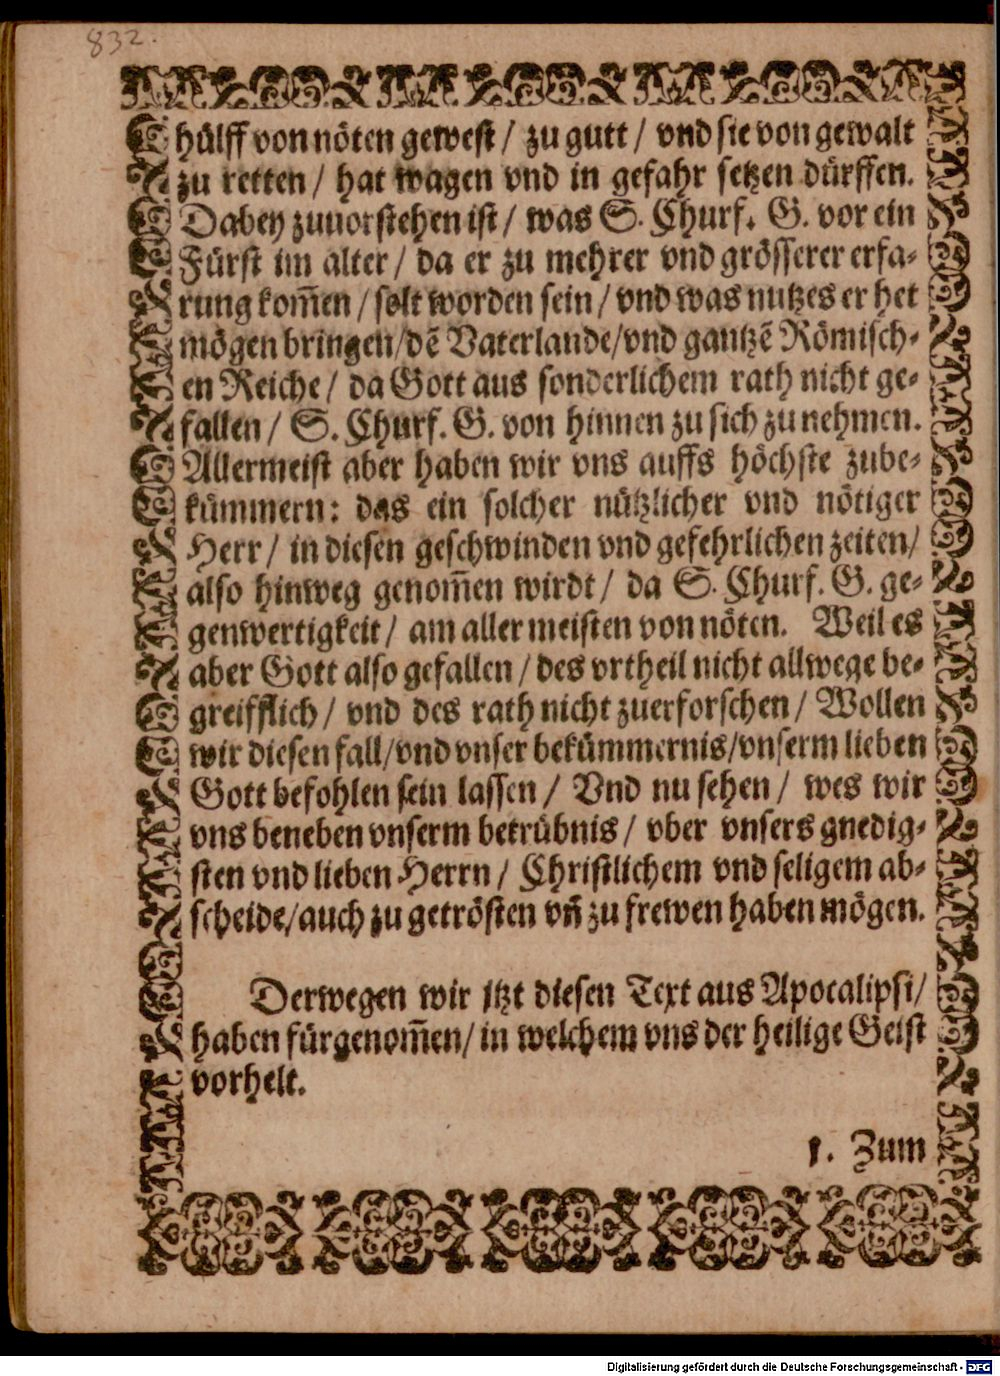 832.
hülff von nöten gewest / zu gutt / vnd sie von gewalt
zu retten / hat wagen vnd in gefahr setzen dürffen.
Dabey zuuorstehen ist / was S. Churf. G. vor ein
Fürst im alter / da er zu mehrer vnd grösserer erfa-
rung kom̄en / solt worden sein / vnd was nutzes er het
mögen bringen / dē Vaterlande / vnd gantzē Römisch-
en Reiche / da Gott aus sonderlichem rath nicht ge-
fallen / S. Churf. G. von hinnen zu sich zu nehmen.
Allermeist aber haben wir vns auffs höchste zube-
kümmern: das ein solcher nützlicher vnd nötiger
Herr / in diesen geschwinden vnd gefehrlichen zeiten /
also hinweg genom̄en wirdt / da S. Churf. G. ge-
genwertigkeit / am aller meisten von nöten. Weil es
aber Gott also gefallen / des vrtheil nicht allwege be-
greifflich / vnd des rath nicht zuerforschen / Wollen
wir diesen fall / vnd vnser bekümmernis / vnserm lieben
Gott befohlen sein lassen / Vnd nu sehen / wes wir
vns beneben vnserm betrübnis / vber vnsers gnedig-
sten vnd lieben Herrn / Christlichem vnd seligem ab-
scheide / auch zu getrösten vn̄ zu frewen haben mögen.
Derwegen wir jtzt diesen Text aus Apocalipsi /
haben fürgenom̄en / in welchem vns der heilige Geist
vorhelt.
1. Zum
Digitalisierung gefördert durch die Deutsche Forschungsgemeinschaft - DFG